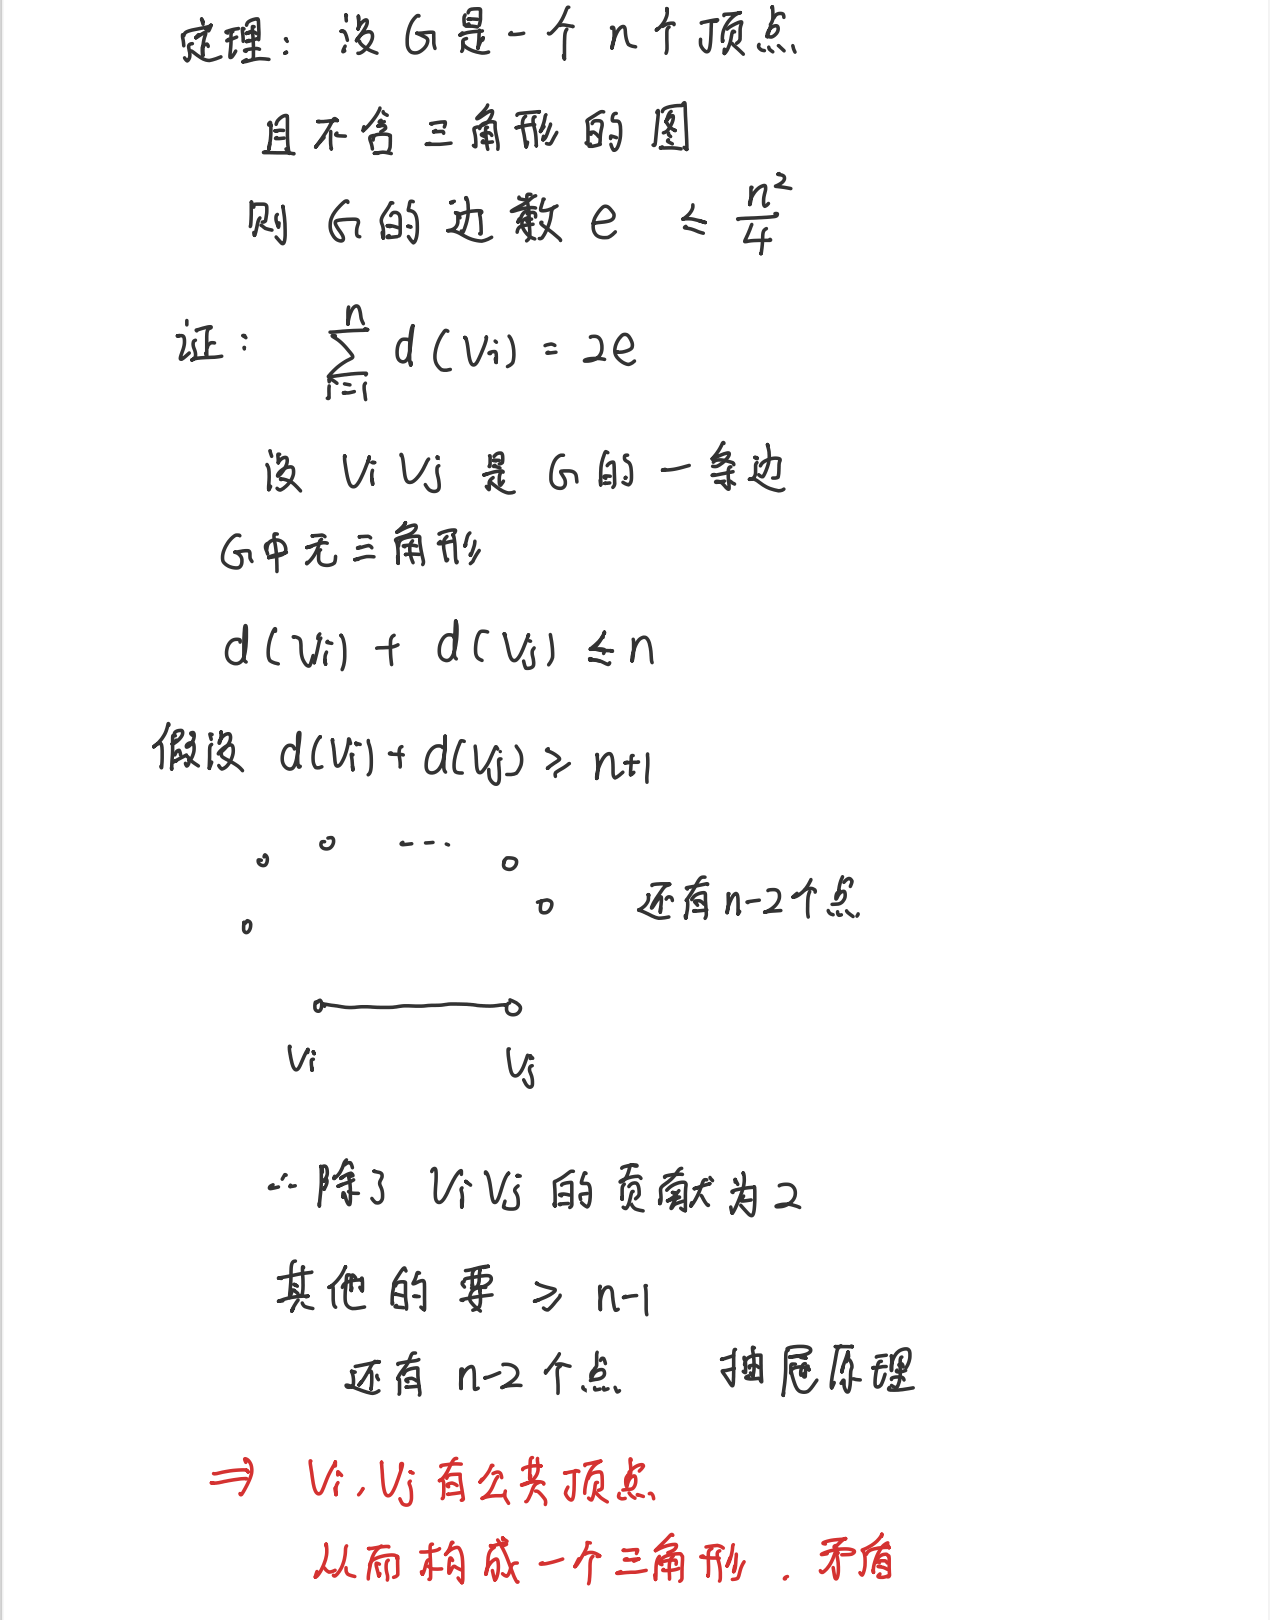 定理: 设 G 是一个 n个顶点
且不含三角形的图
则 G的边数 e ≤ n²/4
证: ∑_{i=1}^{n} d(Vi) = 2e
设 Vi Vj 是 G 的一条边
G中无三角形
d(Vi) + d(Vj) ≤ n
假设 d(Vi) + d(Vj) ≥ n+1
...
还有 n-2个点
Vi Vj
∵ 除了 Vi Vj 的贡献为 2
其他的要 ≥ n-1
还有 n-2 个点 抽屉原理
⇒ Vi, Vj 有公共顶点
从而构成一个三角形. 矛盾